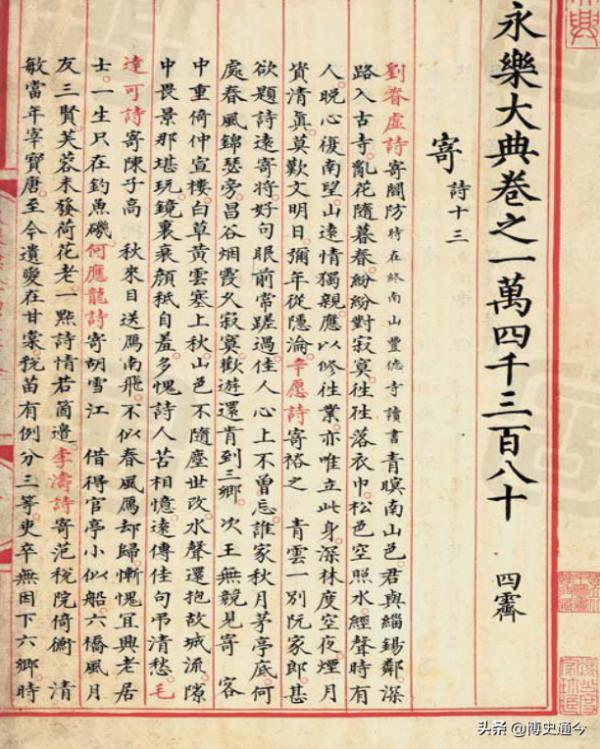 永樂大典卷之一萬四千三百八十 四霽
寄 詩十三
劉眘虛詩寄閻防 時在終南山豐德寺讀書 青暝南山邑。君與緇錫鄰。深
路入古寺。亂花隨暮春。紛紛對寂寞。往往落衣巾。松色空照水。經聲時有
人。晚心復南望。山遠情獨親。應以修往業。亦唯立此身。深林度空夜。煙月
資清真。莫歎文明日。彌年從隱淪。辛愿詩寄裕之 青雲一別阮家郎。甚
欲題詩遠寄將。好句眼前當蹉過。佳人心上不曾忘。誰家秋月茅亭底。何
處春風錦瑟旁。昌谷烟霞久寂寞。歡遊還肯到三鄉。 次王無競見寄 客
中重倚仲宣樓。白草黃雲塞上秋。山色不隨塵世改。水聲還抱故城流。隙
中畏景那堪玩。鏡裏衰顏秖自羞。多愧詩人苦相憶。遠傳佳句弔清愁。毛
達可詩寄陳子高 秋來目送鴈南飛。不似春風鴈却歸。慚愧宜興老居
士。一生只在釣魚磯。何應龍詩寄胡雪江 借得官亭小似船。六橋風月
友三賢。芙蓉未發荷花老。一點詩情若箇邊。李濤詩寄范稅院倚衡 清
敏當年宰寶唐。至今遺愛在甘棠。稅苗有例分三等。吏卒無因下六鄉。時
头条 @博史通今